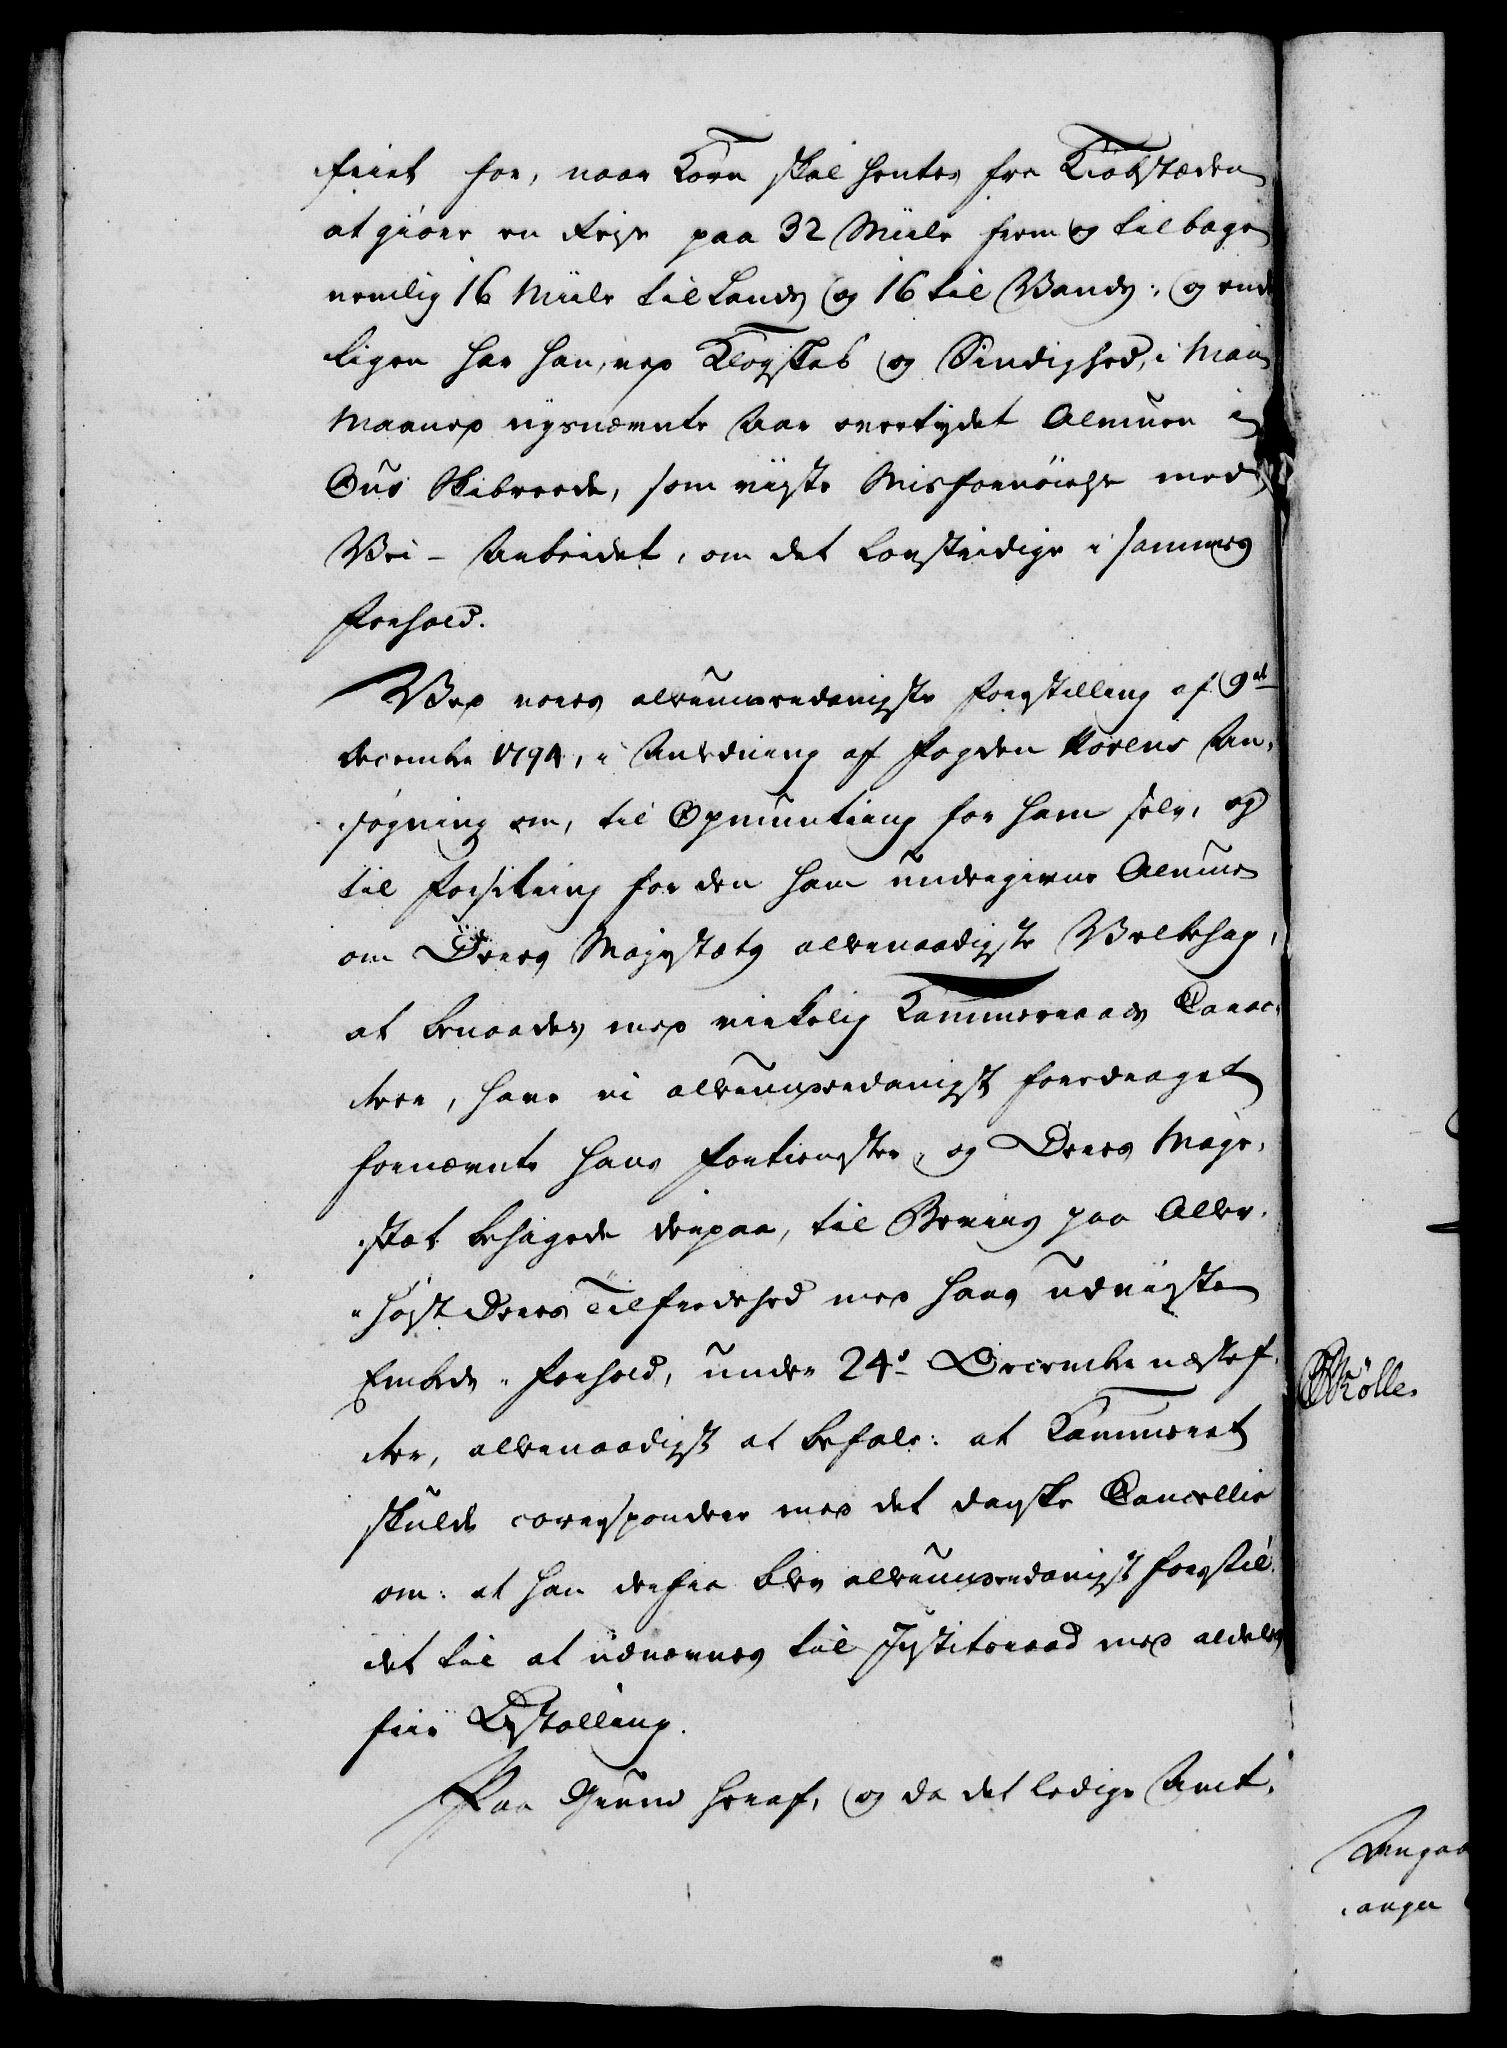 friet for, naar Korn skal hentes fra Kiöbstæden
at giöre en Reise paa 32 Miile frem og tilbage
nemlig 16 Miile til Lands og 16 til Vands; og ende
ligen har han, ved Klogskab og Sindighed, i Mai
Maaned nysnævnte Aar overtydet Almuen i
Ous Skibreede, som viiste Misfornöielse med
Vei-Arbeidet, om det lovstridige i sammes
Forhold.
Ved vores allerunderdanigste Forestilling af 9de
December 1794, i Anledning af Fogden Korens An,
søgning om, til Opmuntring for ham selv, og
til for den ham undergivne Almue
om Deres Majestæts allernaadigste Velbehag,
at benaades med virkelig Kammerraads Carac,
teer, have vi allerunderdanigst foredraget
fornævnte hans Fortienester, og Deres Maje,
stæt behagede derpaa, til Beviis paa Aller,
høist Deres Tilfredshed med hans udviste
Embeds-Forhold, under 24de December næstef,
ter, allernaadigst at befale: at Kammeret
skulde correspondere med det danske Cancellie
om: at han derfra blev allerunderdanigst forestil,
det til at udnævnes til Justitsraad med aldeles
frie Bestalling.
Paa Grund heraf, og da det ledige Amt,
Skölle,
anger